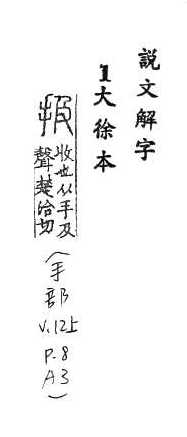 説文解字
1大徐本
扱 收也从手及
聲楚洽切
(手
部
V.12上
P.8
A3)